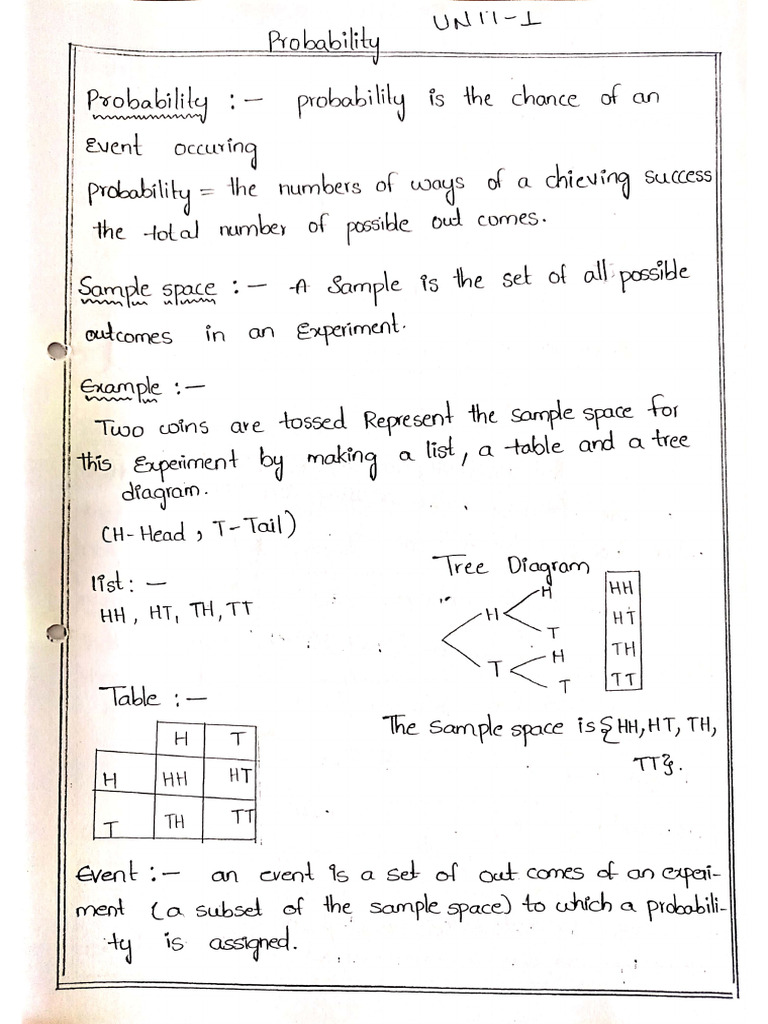 UNIT-I
Probability
Probability :- probability is the chance of an
Event occuring
probability = the numbers of ways of a chieving success
the total number of possible out comes.
Sample space :- A Sample is the set of all possible
outcomes in an Experiment.
Example :-
Two coins are tossed Represent the sample space for
this Experiment by making a list, a table and a tree
diagram.
(H-Head, T-Tail)
list: -
HH, HT, TH, TT
Tree Diagram
H
H
T
T
H
T
HH
HT
TH
TT
Table :-
H T
H HH HT
T TH TT
The Sample space is {HH, HT, TH,
TT}.
Event :- an event is a set of out comes of an experi-
ment (a subset of the sample space) to which a probabili-
ty is assigned.